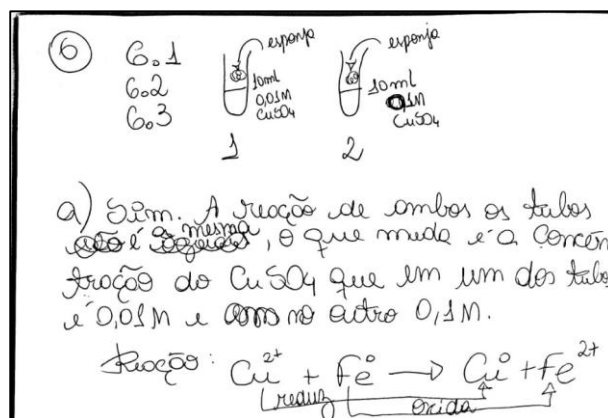 6
6.1
6.2
6.3
esponja
10ml
0,01M
CuSO4
1
esponja
10ml
0,1M
CuSO4
2
a) Sim. A reação de ambos os tubos
é a mesma, o que muda é a concen
tração do CuSO4 que em um dos tubo
é 0,01M e no outro 0,1M.
Reação: Cu²⁺ + Fe⁰ → Cu⁰ + Fe²⁺
reduz
oxida